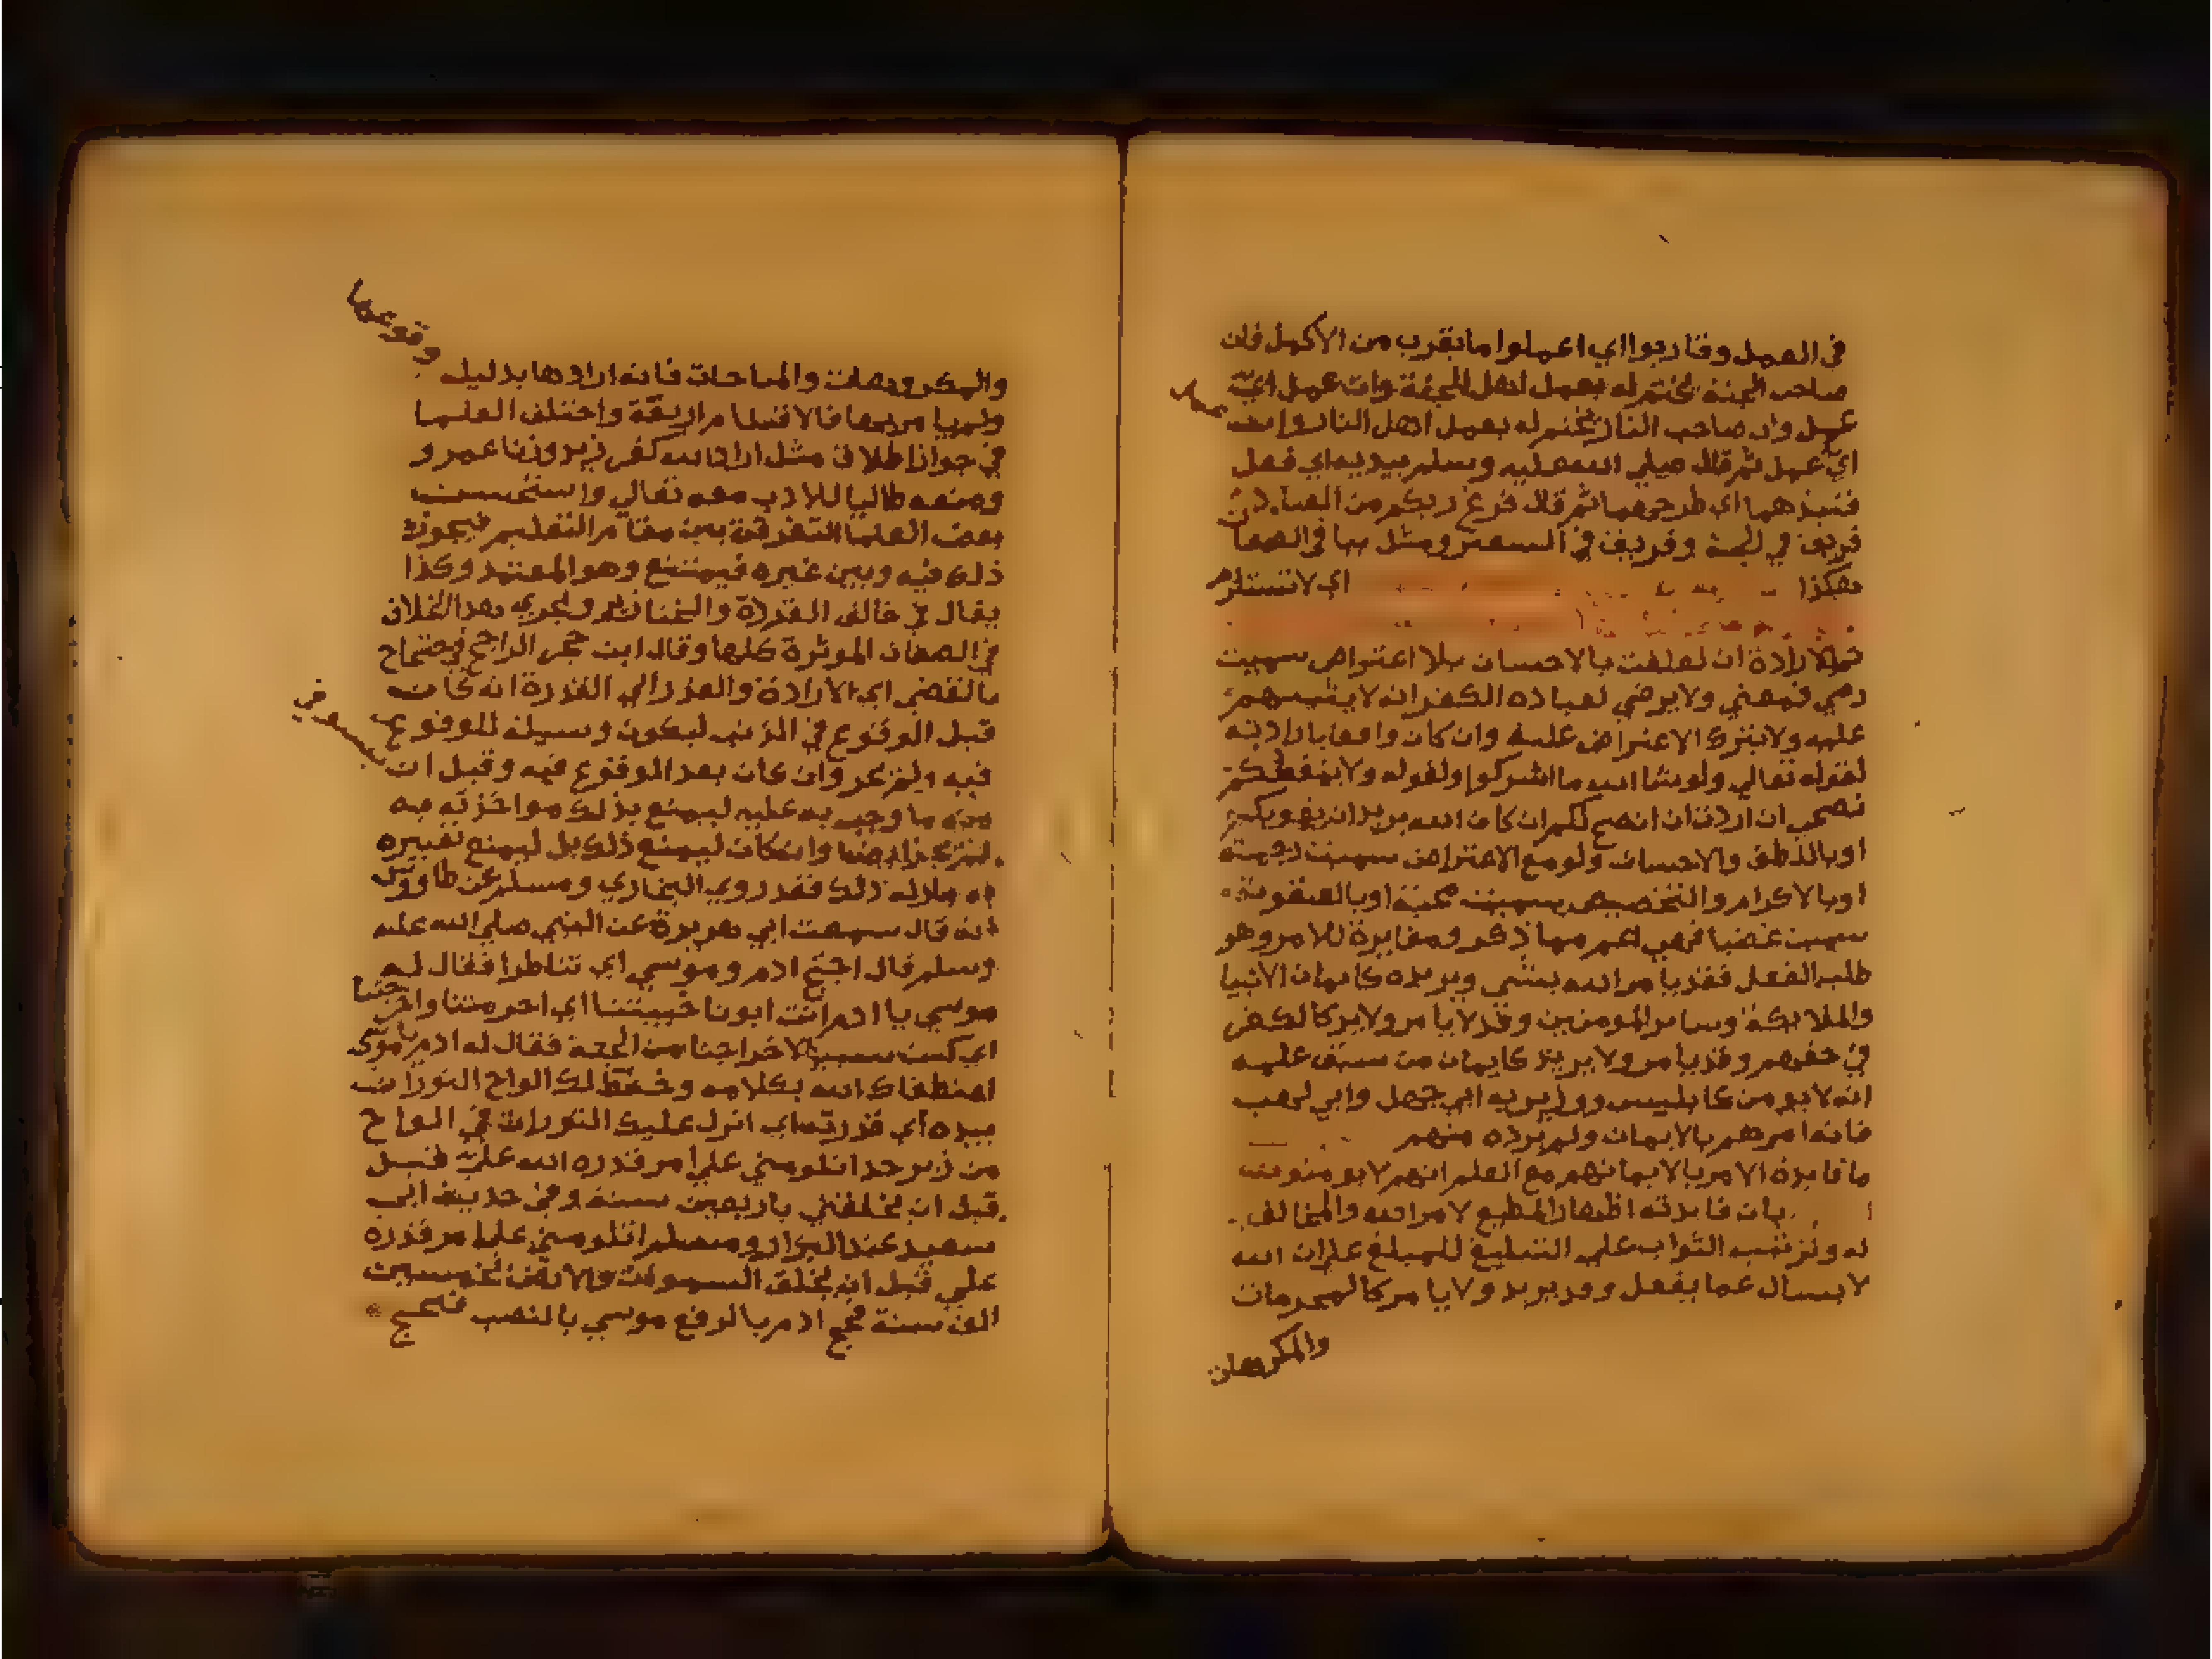 في العمل وقاربوا اي اعملوا ما يقرب من الاكمل فان
صاحب الجنة يختم له بعمل اهل الجنة وان عمل اي
عمل وان صاحب النار يختم له بعمل اهل النار وان عمل
اي عمل ثم قال صلي الله عليه وسلم بيديه اي فعل
فنبذهما اي طرحهما ثم قال فرغ ربكم من العباد
فريق في الجنة وفريق في السعير ومثل ما في
هكذا اي لا تستلزم
ثم الارادة ان تعلقت بالاحسان بلا اعتراض سميت
رضي فمعني ولا يرضي لعباده الكفر انه لا يثيبهم
عليه ولا يترك الاعتراض عليه وان كان واقعا بارادته
لقوله تعالي ولو شا الله ما اشركوا ولقوله ولا ينفعكم
نصحي ان اردت ان انصح لكم ان كان الله يريد ان يغويكم
او باللطف والاحسان ولو مع الاعتراض سميت رحمة
او بالاكرام والتخصيص سميت محبة او بالعقوبة
سميت غضبا فهي اعم مما ذكر ومغايرة للامر وهو
طلب الفعل فقد يامر الله بشي ويريده كايمان الانبيا
والملايكة وساير المومنين وقد لا يامر ولا يريد كالكفر
في حقهم وقد يامر ولا يريد كايمان من سبق عليه
انه لا يومن كابليس ووزيريه ابي جهل وابي لهب
فانه امرهم بالايمان ولم يرده منهم
ما فايدة الامر بالايمانهم مع العلم انهم لا يومنون
بان فايدته اظهار المطيع لامر الله والمخالف
له وترتب الثواب علي التبليغ للمبلغ علي ان الله
لا يسال عما يفعل وقد يريد ولا يامر كالمحرمات
والمكروهات
والمكروهات والمباحات فانه ارادها بدليل وقوعها
ولم يامر بها فالاقسام اربعة واختلف العلما
في جواز اطلاق مثل اراد الله كفر زيد وزنا عمرو
ومنعه طالبا للادب معه تعالي واستحسن
بعض العلما التفرقة بين مقام التعليم فيجوز
ذلك فيه وبين غيره فيمتنع وهو المعتمد وكذا
يقال في خالق القردة والخنازير ويجري هذا الخلاف
في الصفات الموثرة كلها وقال ابن حجر الراجح في
بالقضي اي الارادة والقدر اي القدرة انه كان
قبل الوقوع في الذنب ليكون وسيلة للوقوع
فيه لم يجز وان كان بعد الوقوع فيه وقبل ان يستوفي
منه ما وجب به عليه ليمنع بذلك مواخذته به
لم يجز ايضا وان كان ليمنع ذلك بل ليمنع تعييره
ذلك فقد روي البخاري ومسلم عن طاووس
انه قال سمعت ابي هريرة عن النبي صلي الله عليه
وسلم قال احتج ادم وموسي اي تناظرا فقال له
موسي يا ادم انت ابونا خيبتنا اي احرمتنا واخرجتنا
اي كنت سببا لاخراجنا من الجنة فقال له ادم يا موسي
اصطفاك الله بكلامه وخط لك الواح التورات
بيده اي قدرته اي انزل عليك التورات في الواح
من زبرجد اتلومني علي امر قدره الله علي قبل
قبل ان يخلقني باربعين سنة وفي حديث ابي
سعيد عند البزار ومسلم اتلومني علي امر قدره
علي قبل ان يخلق السموات والارض بخمسين
الف سنة فحج ادم بالرفع موسي بالنصب فحج